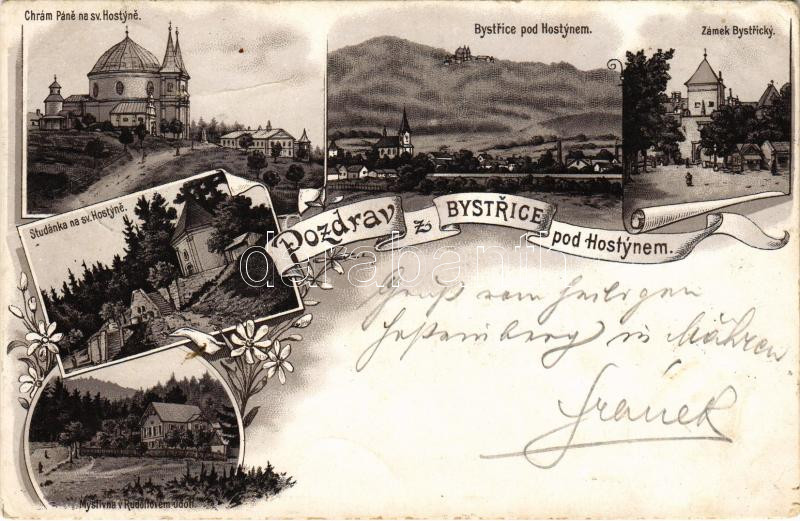 Chrám Páně na sv. Hostýně.
Bystřice pod Hostýnem.
Zámek Bystřický.
Studánka na sv. Hostýně.
Pozdrav z BYSTŘICE pod Hostýnem.
darabanth
Gruß vom heiligen
in Mähren
Myslivna v Rudolfovem údolí.